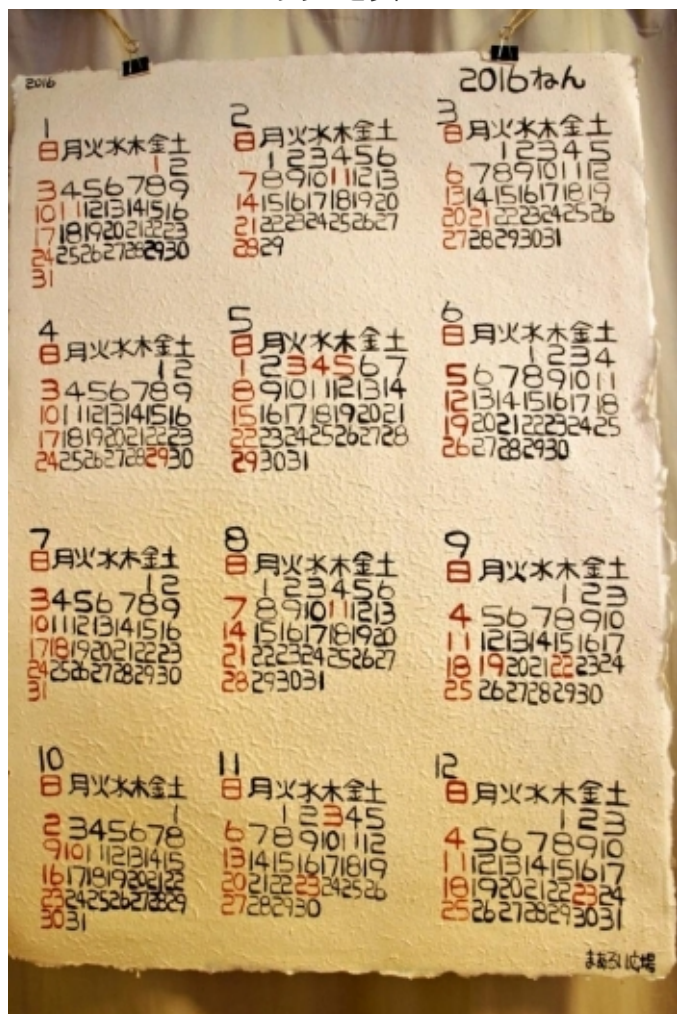 2016
2016ねん
1
日 月 火 水 木 金 土
1 2
3 4 5 6 7 8 9
10 11 12 13 14 15 16
17 18 19 20 21 22 23
24 25 26 27 28 29 30
31
2
日 月 火 水 木 金 土
1 2 3 4 5 6
7 8 9 10 11 12 13
14 15 16 17 18 19 20
21 22 23 24 25 26 27
28 29
3
日 月 火 水 木 金 土
1 2 3 4 5
6 7 8 9 10 11 12
13 14 15 16 17 18 19
20 21 22 23 24 25 26
27 28 29 30 31
4
日 月 火 水 木 金 土
1 2
3 4 5 6 7 8 9
10 11 12 13 14 15 16
17 18 19 20 21 22 23
24 25 26 27 28 29 30
5
日 月 火 水 木 金 土
1 2 3 4 5 6 7
8 9 10 11 12 13 14
15 16 17 18 19 20 21
22 23 24 25 26 27 28
29 30 31
6
日 月 火 水 木 金 土
1 2 3 4
5 6 7 8 9 10 11
12 13 14 15 16 17 18
19 20 21 22 23 24 25
26 27 28 29 30
7
日 月 火 水 木 金 土
1 2
3 4 5 6 7 8 9
10 11 12 13 14 15 16
17 18 19 20 21 22 23
24 25 26 27 28 29 30
31
8
日 月 火 水 木 金 土
1 2 3 4 5 6
7 8 9 10 11 12 13
14 15 16 17 18 19 20
21 22 23 24 25 26 27
28 29 30 31
9
日 月 火 水 木 金 土
1 2 3
4 5 6 7 8 9 10
11 12 13 14 15 16 17
18 19 20 21 22 23 24
25 26 27 28 29 30
10
日 月 火 水 木 金 土
1
2 3 4 5 6 7 8
9 10 11 12 13 14 15
16 17 18 19 20 21 22
23 24 25 26 27 28 29
30 31
11
日 月 火 水 木 金 土
1 2 3 4 5
6 7 8 9 10 11 12
13 14 15 16 17 18 19
20 21 22 23 24 25 26
27 28 29 30
12
日 月 火 水 木 金 土
1 2 3
4 5 6 7 8 9 10
11 12 13 14 15 16 17
18 19 20 21 22 23 24
25 26 27 28 29 30 31
まあるい広場